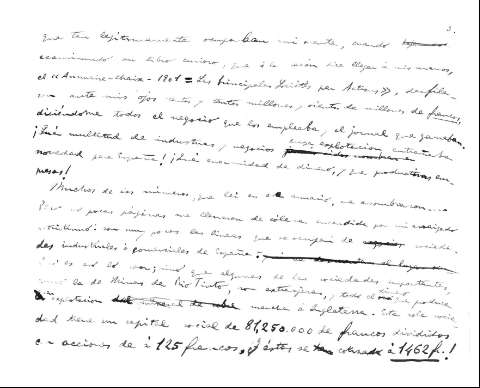 3.
que tan legítimamente ocupaban mi mente, cuando
examinando un libro curioso, que á la sazón
el «Annuaire-Chaix-1901 = Les principales Sociétés par Actions», desfila-
ron ante mis ojos cientos, y cientos millones, de millones de francos,
diciéndome todos el negocio que los empleaba, y el jornal que ganaban.
¡Qué multitud de industrias, y negocios cuya explotación entrañaba
novedad para España! ¡Qué enormidad de dinero, y qué em-
presas!
Muchos de los números, que leí en el anuario, me asombraron...
Pero no pocas páginas me llenaron de cólera encendida por mi
: son muy pocas las líneas que se ocupan de socieda-
des industriales ó comerciales de España:
es así lo , que algunas de las sociedades importantes,
como la de Minas de Rio Tinto, son extranjeras, y todo el dinero que produce
la explotación marcha á Inglaterra. Esta sola socie-
dad tiene un capital social de 81,250.000 de francos divididos
en acciones de á 125 francos, y éstas se á 1462 f.!